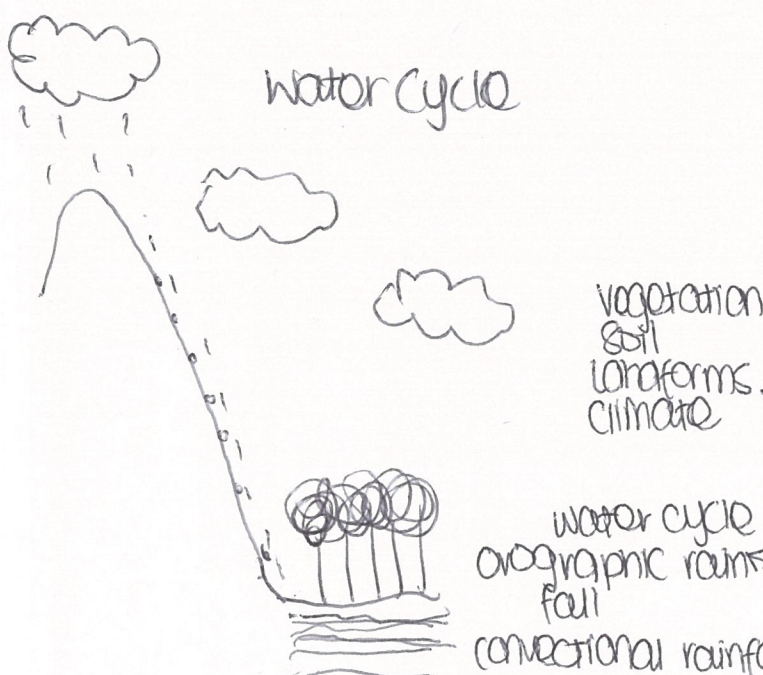 water cycle
vegetation
soil
landforms.
climate
water cycle
orographic rain
fall
convectional rainfa